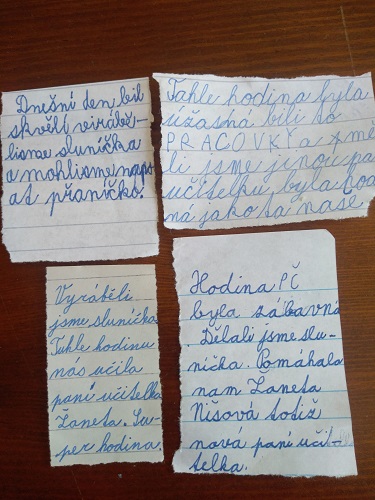 Dnešní den bil
skvělí viráběl-
lisme sluníčka
a mohlisme naps
at přaníčko!
Tahle hodina byla
úžasná bili to
PRACOVKY a mě
li jsme jinou pa
učitelku byla hod
ná jako ta naše
Vyráběli
jsme sluníčka
Tuhle hodinu
nás učila
paní učitelka
Žaneta. Su-
per hodina.
Hodina PČ
byla zábavná
. Dělali jsme slu-
níčka. Pomáhala
nam Žaneta
Nišová totiž
navá paní učit-
telka.